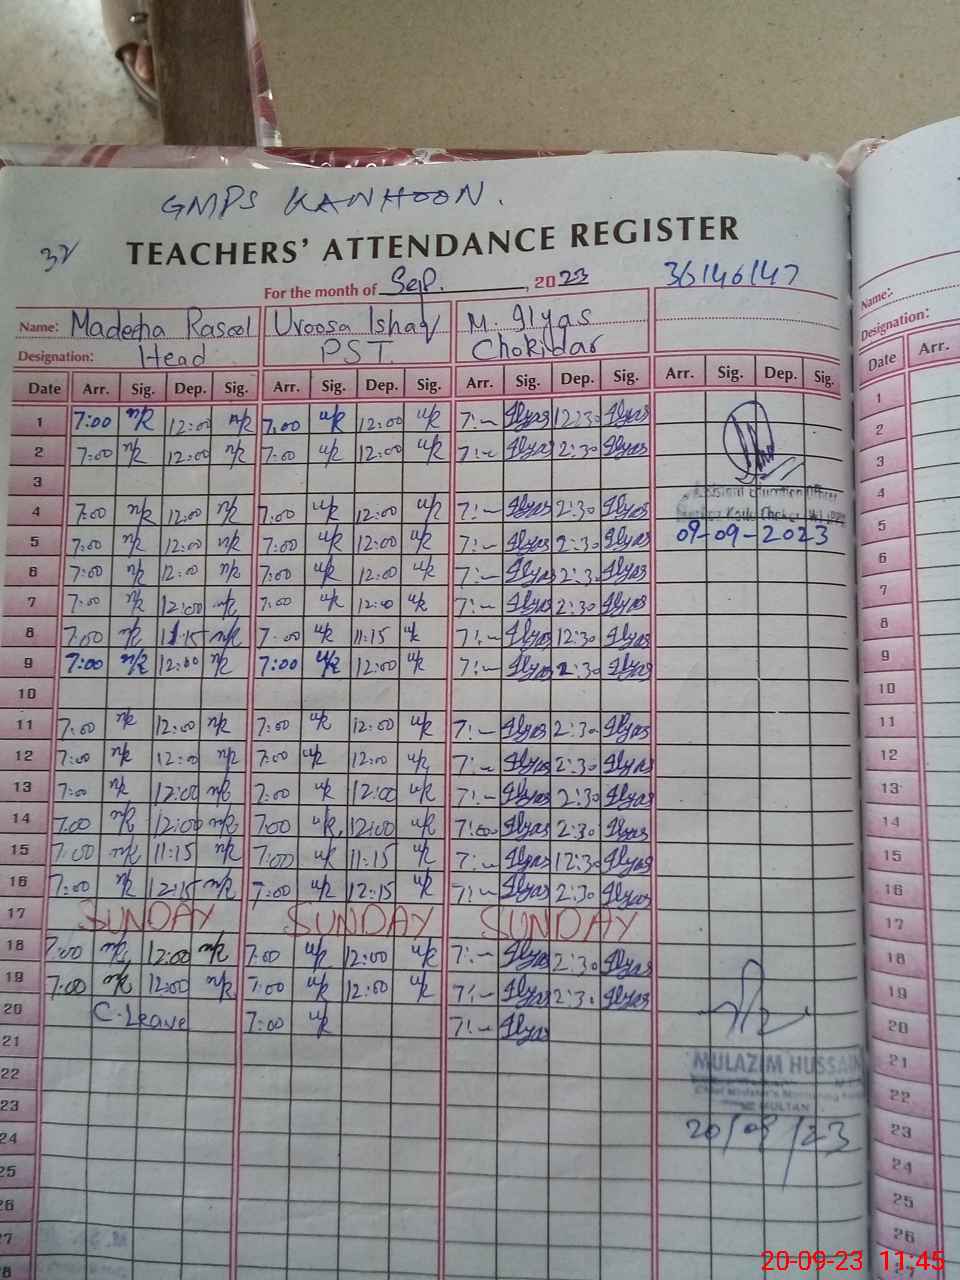 GMPS KANHOON.
32
TEACHERS' ATTENDANCE REGISTER
For the month of Sep. 2023 36146147
Name: Madeeha Rasool Uroosa Ishaq M. Ilyas
Designation: Head PST Chokidar
Date Arr. Sig. Dep. Sig. Arr. Sig. Dep. Sig. Arr. Sig. Dep. Sig. Arr. Sig. Dep. Sig.
1 7:00 12:00 7:00 12:00 7:- Ilyas 12:30 Ilyas
2 7:00 12:00 7:00 12:00 7:- Ilyas 2:30 Ilyas
3
Assistant Education Officer
4 7:00 12:00 7:00 12:00 7:- Ilyas 2:30 Ilyas
5 7:00 12:00 7:00 12:00 7:- Ilyas 2:30 Ilyas 09-09-2023
6 7:00 12:00 7:00 12:00 7:- Ilyas 2:3 Ilyas
7 7:00 12:00 7:00 12:00 7:- Ilyas 2:30 Ilyas
8 7:00 11:15 7:00 11:15 7:- Ilyas 12:30 Ilyas
9 7:00 12:00 7:00 12:00 7:- Ilyas 2:30 Ilyas
10
11 7:00 12:00 7:00 12:00 7:- Ilyas 2:30 Ilyas
12 7:00 12:00 7:00 12:00 7:- Ilyas 2:30 Ilyas
13 7:00 12:00 7:00 12:00 7:- Ilyas 2:30 Ilyas
14 7:00 12:00 7:00 12:00 7:00 Ilyas 2:30 Ilyas
15 7:00 11:15 7:00 11:15 7:- Ilyas 12:30 Ilyas
16 7:00 12:15 7:00 12:15 7:- Ilyas 2:30 Ilyas
17 SUNDAY SUNDAY SUNDAY
18 7:00 12:00 7:00 12:00 7:- Ilyas 2:30 Ilyas
19 7:00 12:00 7:00 12:00 7:- Ilyas 2:30 Ilyas
20 C-Leave 7:00 7:- Ilyas
21
MULAZIM HUSSAIN
22
MULTAN
23
20/09/23
24
25
26
27
Name:
Designation:
Date Arr.
1
2
3
4
5
6
7
8
9
10
11
12
13
14
15
16
17
18
19
20
21
22
23
24
25
26
27
20-09-23 11:45